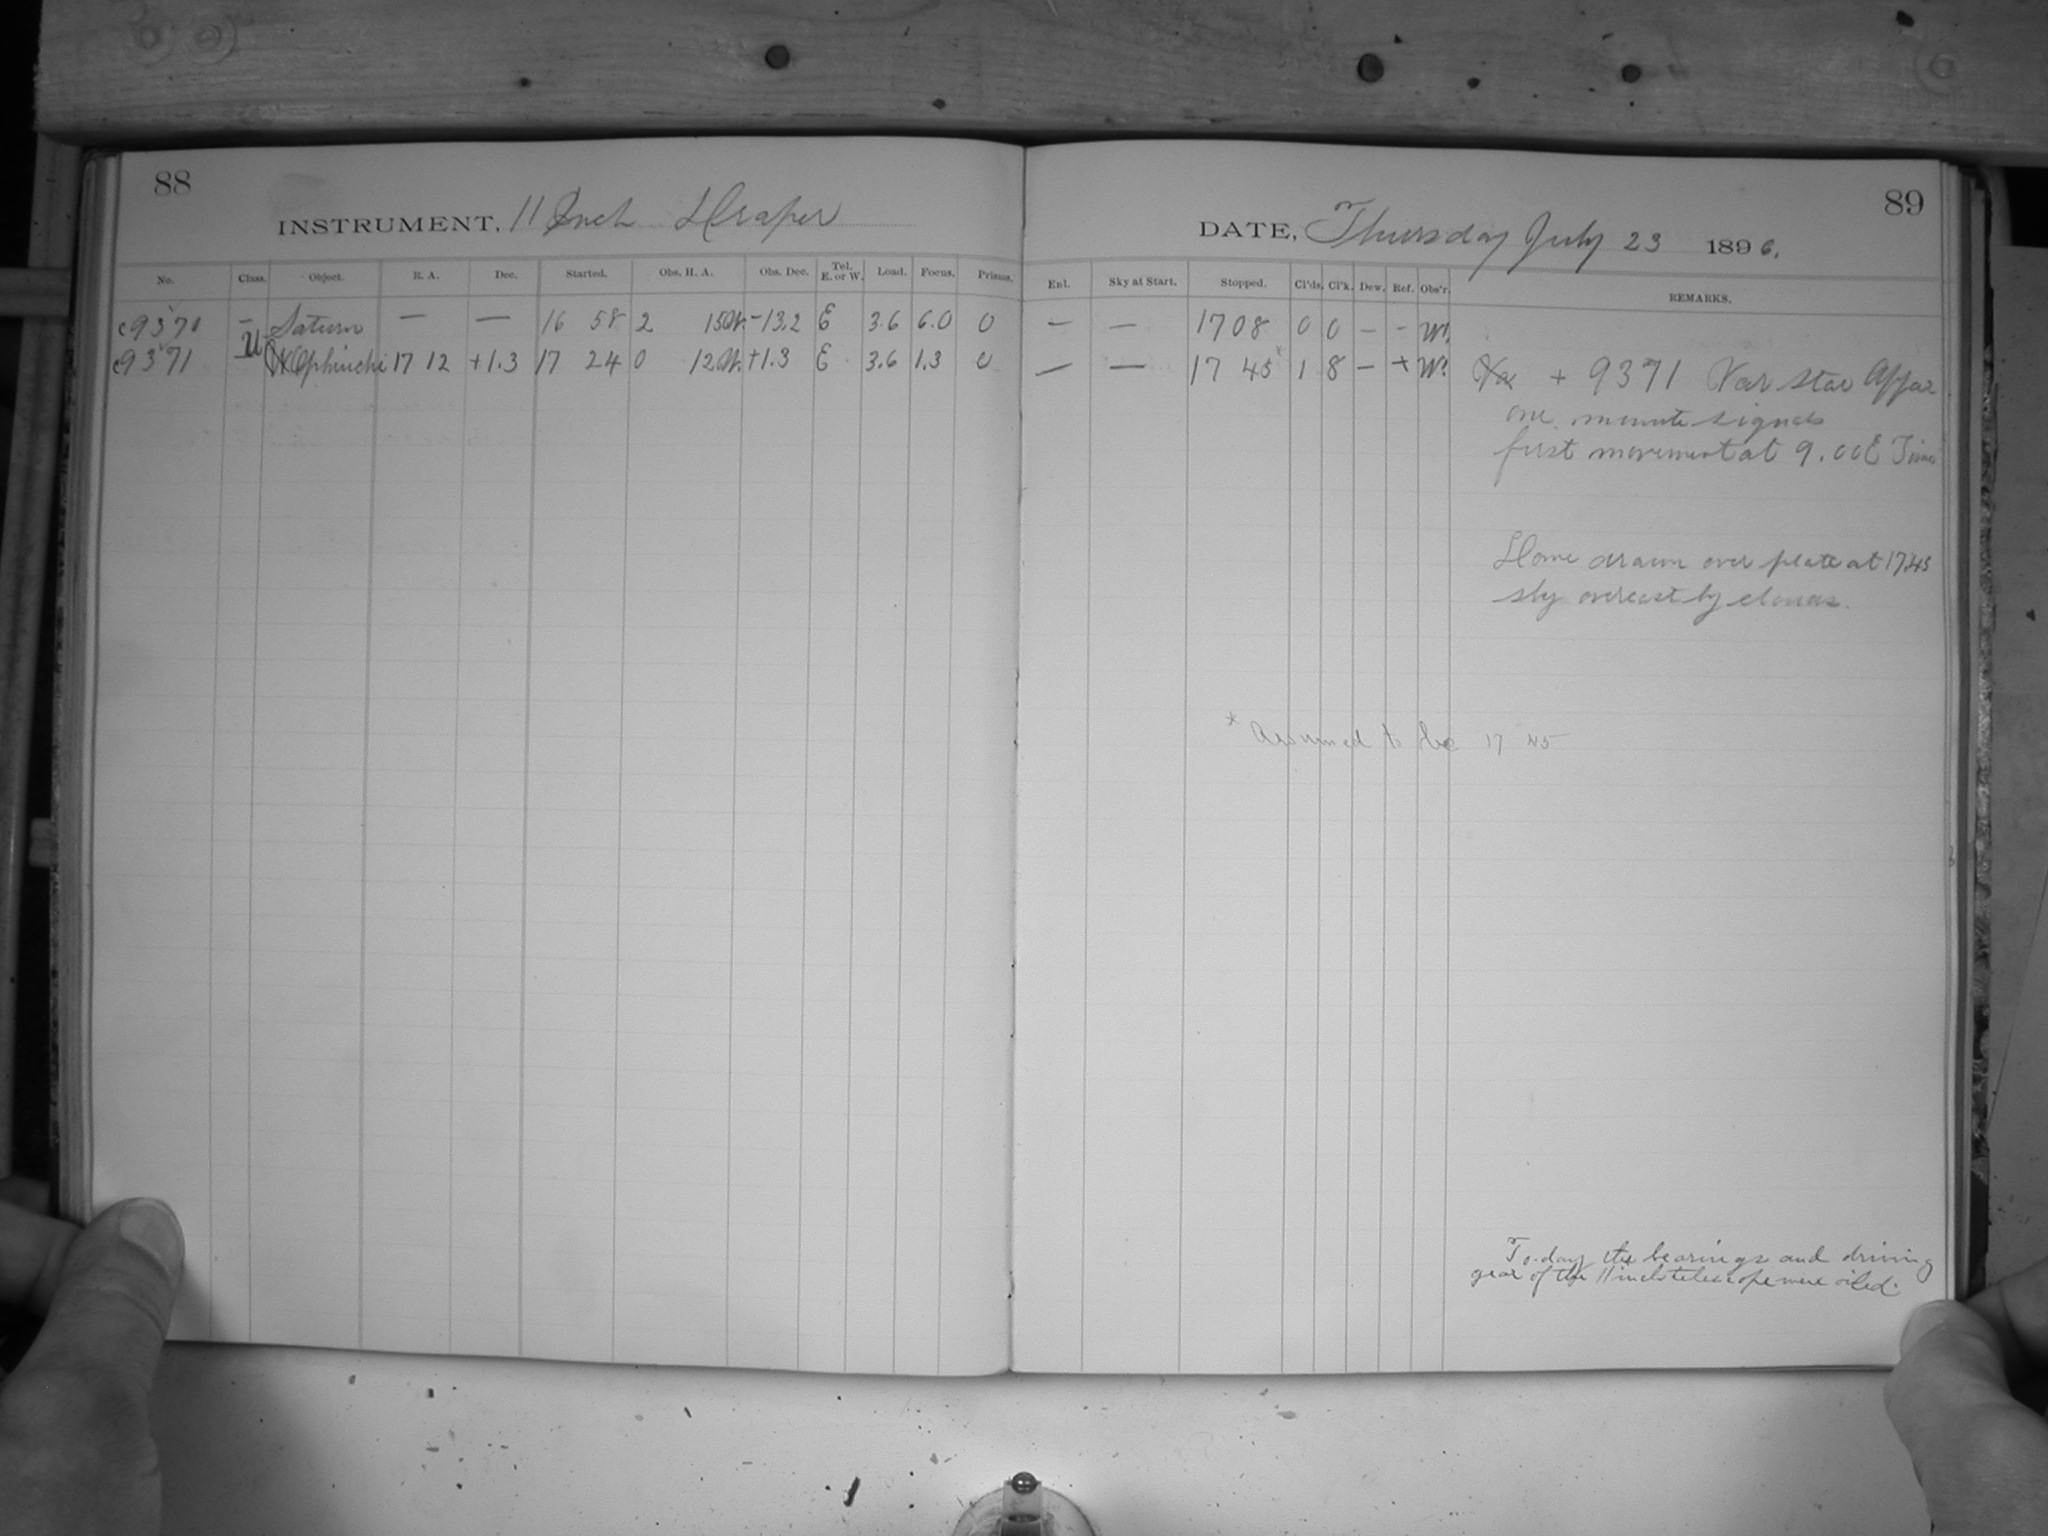 88
INSTRUMENT, 11 Inch Draper
No. Class. Object. R. A. Dec. Started. Obs. H. A. Obs. Dec. Tel. E. or W. Load. Focus. Prisms.
c9370 — Saturn — — 16 58 2 15W. -13.2 E 3.6 6.0 0
c9371 U Ophiuchi 17 12 +1.3 17 24 0 12W. +1.3 E 3.6 1.3 0
89
DATE, Thursday July 23 1896.
Enl. Sky at Start. Stopped. Cl'ds. Cl'k. Dew. Ref. Obs'r. REMARKS.
— — 17 08 0 0 — - W.
— — 17 45* 1 8 — + W.
+ 9371 Var star Appar
one minute signals
first movement at 9.00 E Time
Dome drawn over plate at 17.45
sky overcast by clouds.
* Assumed to be 17 45
To-day the bearings and driving
gear of the 11 inch telescope were oiled.